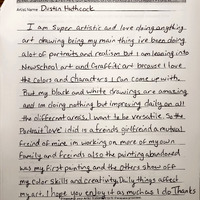 Artist Name: Dustin Hathcock
I am Super artistic and love doing anything
art drawing being my main thing ive been doing
alot of portraits and realism. But I am leaning into
Newschool art and Graffiti art because I love
the colors and characters I can come up with.
But my black and white drawings are amazing
and im doing nothing but improving daily on all
the different areas. I want to be versatile. So the
Portrait "love" i did is a freinds girlfreind a mutual
freind of mine im working on more of my own
family and freinds also the painting abandoned
was my first painting and the others show off
my color skills and creativity. Daily things affect
my art. I hope you enjoy it as much as I do Thanks